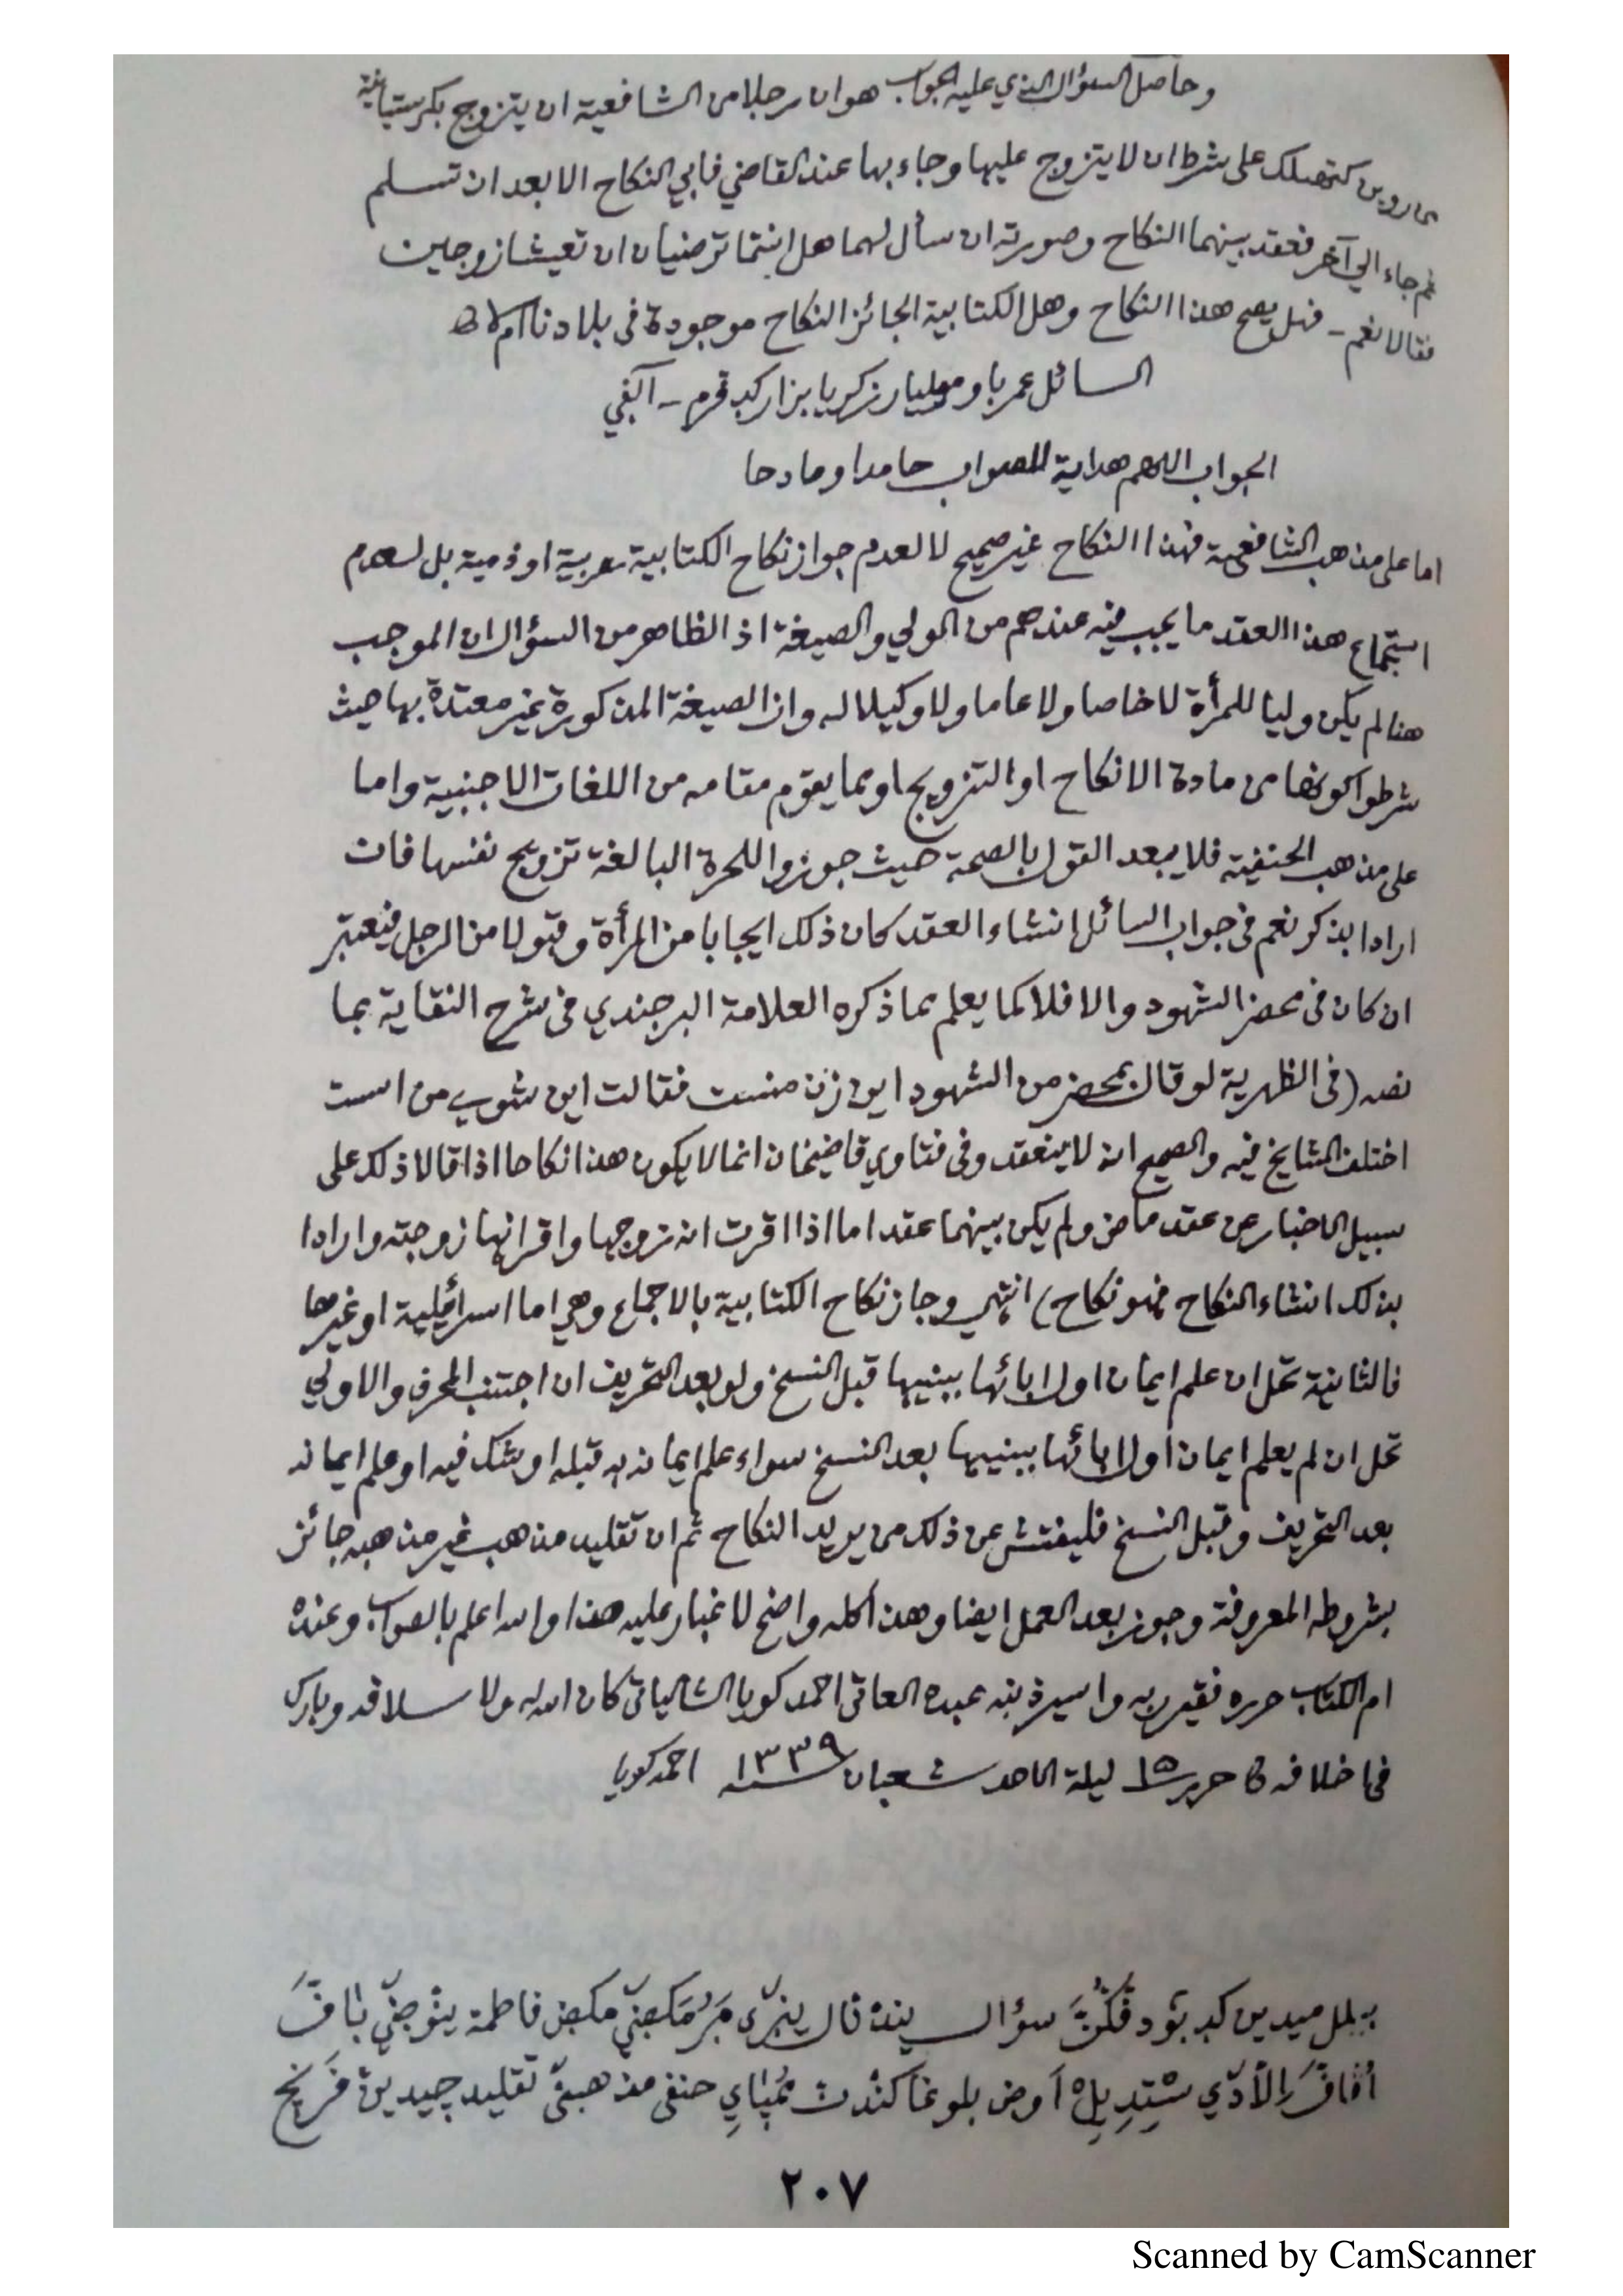 وحاصل السؤال الذي عليه الجواب هو ان رجلا من الشافعية ان يتزوج بكرستيانية
كتهلك على شرط ان لا يتزوج عليها وجاء بها عند القاضي فابي النكاح الا بعد ان تسلم
ثم جاء الي آخر فعقد بينهما النكاح وصورته ان سأل لهما هل انتما ترضيان ان تعيشا زوجين
فقالا نعم ـ فهل يصح هذا النكاح وهل الكتابية الجائز النكاح موجودة في بلادنا ام لا
السائل عمر باو مسليار زكريا بزار كد قرم ـ آلفي
الجواب اللهم هداية للصواب حامدا ومادحا
اما على مذهب الشافعية فهذا النكاح غير صحيح لا لعدم جواز نكاح الكتابية حربية او ذمية بل لعدم
استجماع هذا العقد ما يجب فيه عندهم من الولي والصيغة اذ الظاهر من السؤال ان الموجب
هنا لم يكن وليا للمرأة لا خاصا ولا عاما ولا وكيلا له وان الصيغة المذكورة غير معتدة بها حيث
شرطوا كونها من مادة الانكاح او التزويج او بما يقوم مقامه من اللغات الاجنبية واما
على مذهب الحنفية فلا يبعد القول بالصحة حيث جوزوا للحرة البالغة تزويج نفسها فان
ارادا بذكر نعم في جواب السائل انشاء العقد كان ذلك ايجابا من المرأة وقبولا من الرجل فيعتبر
ان كان في محضر الشهود والا فلا كما يعلم مما ذكره العلامة البرجندي في شرح النقاية بما
نصه (في الظهرية لو قال بمحضر من الشهود اين زن منست فقالت اين شوي من است
اختلف المشايخ فيه والصحيح انه لا ينعقد وفي فتاوي قاضيخان انما لا يكون هذا نكاحا اذا قالا ذلك على
سبيل الاخبار عن عقد ماض ولم يكن بينهما عقد اما اذا اقرت انه زوجها واقر انها زوجته وارادا
بذلك انشاء النكاح فهو نكاح) انتهي وجاز نكاح الكتابية بالاجماع وهي اما اسرائيلية او غيرها
فالثانية تحل ان علم ايمان اول ابائها بنبيها قبل النسخ ولو بعد التحريف ان اجتنب المحرف والاولي
تحل ان لم يعلم ايمان اول ابائها بنبيها بعد النسخ سواء علم ايمانه به قبله او شك فيه او علم ايمانه
بعد التحريف وقبل النسخ فليفتش عن ذلك من يريد النكاح ثم ان تقليد مذهب غير مذهبه جائز
بشروطه المعروفة وجوز بعد العمل ايضا وهذا كله واضح لا غبار عليه هذا والله اعلم بالصواب وعنده
ام الكتاب حرره فقير ربه واسير ذنبه عبده العاتي احمد كويا الشالياتي كان الله له ولاسلافه وبارك
في اخلافه حرر ١٥ ليلة الاحد شعبان سنه ١٣٣٩ احمد كويا
سؤال فاطمة
بلوغا حنفي مذهبڹ تقليد چيدين
٢٠٧
Scanned by CamScanner